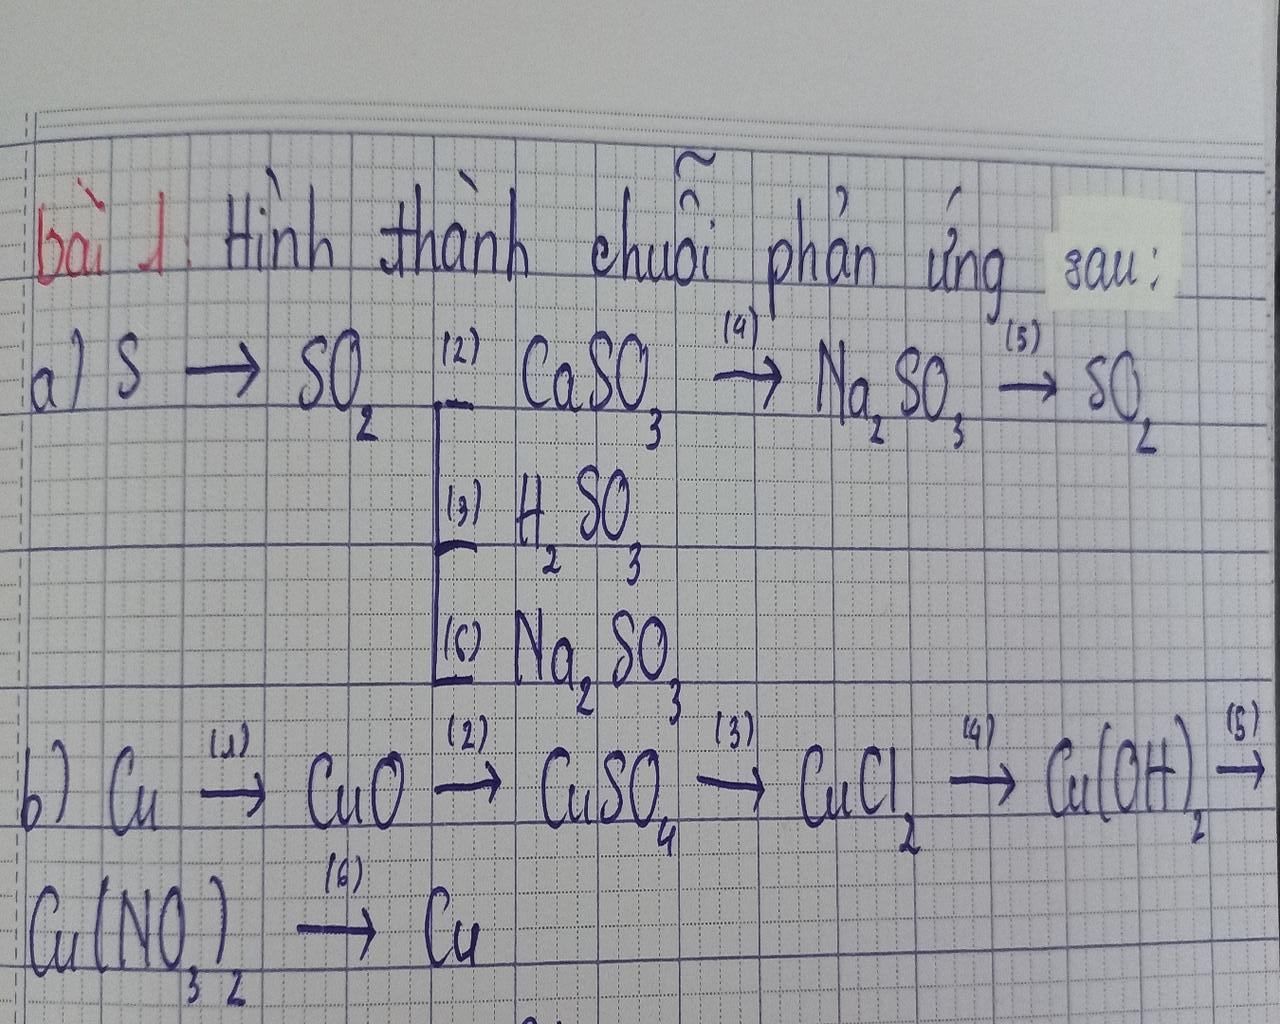 bài 1. Hình thành chuỗi phản ứng sau:
a) S → SO₂ (2) CaSO₃ (4)→ Na₂SO₃ (5)→ SO₂
(3) H₂SO₃
(6) Na₂SO₃
b) Cu (1)→ CuO (2)→ CuSO₄ (3)→ CuCl₂ (4)→ Cu(OH)₂ (5)→
Cu(NO₃)₂ (6)→ Cu